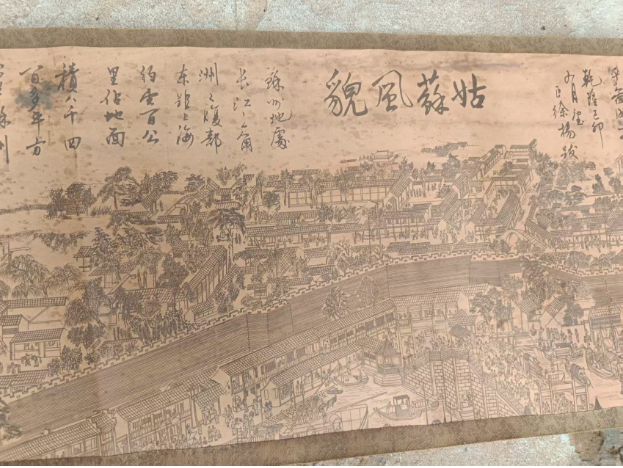 乾隆己卯
九月
臣徐揚跋
姑蘇風貌
蘇州地處
長江三角
洲之腹部
东距上海
约壹百公
里佔地面
積八千四
百多平方
里蘇州